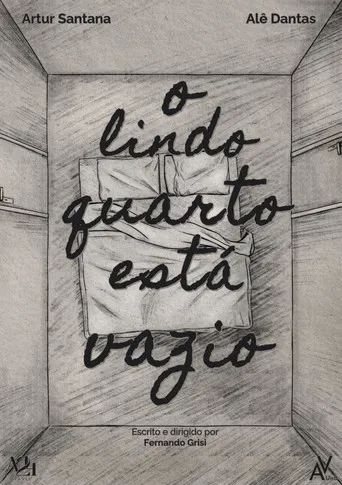 Artur Santana
Alê Dantas
o
lindo
quarto
está
vazio
Escrito e dirigido por
Fernando Grisi